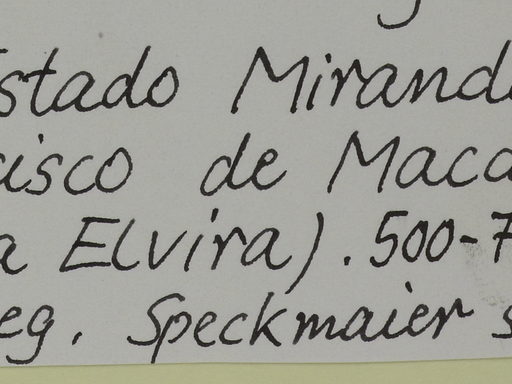 Estado Miranda
cisco de Maca
a Elvira). 500-7
leg. Speckmaier s